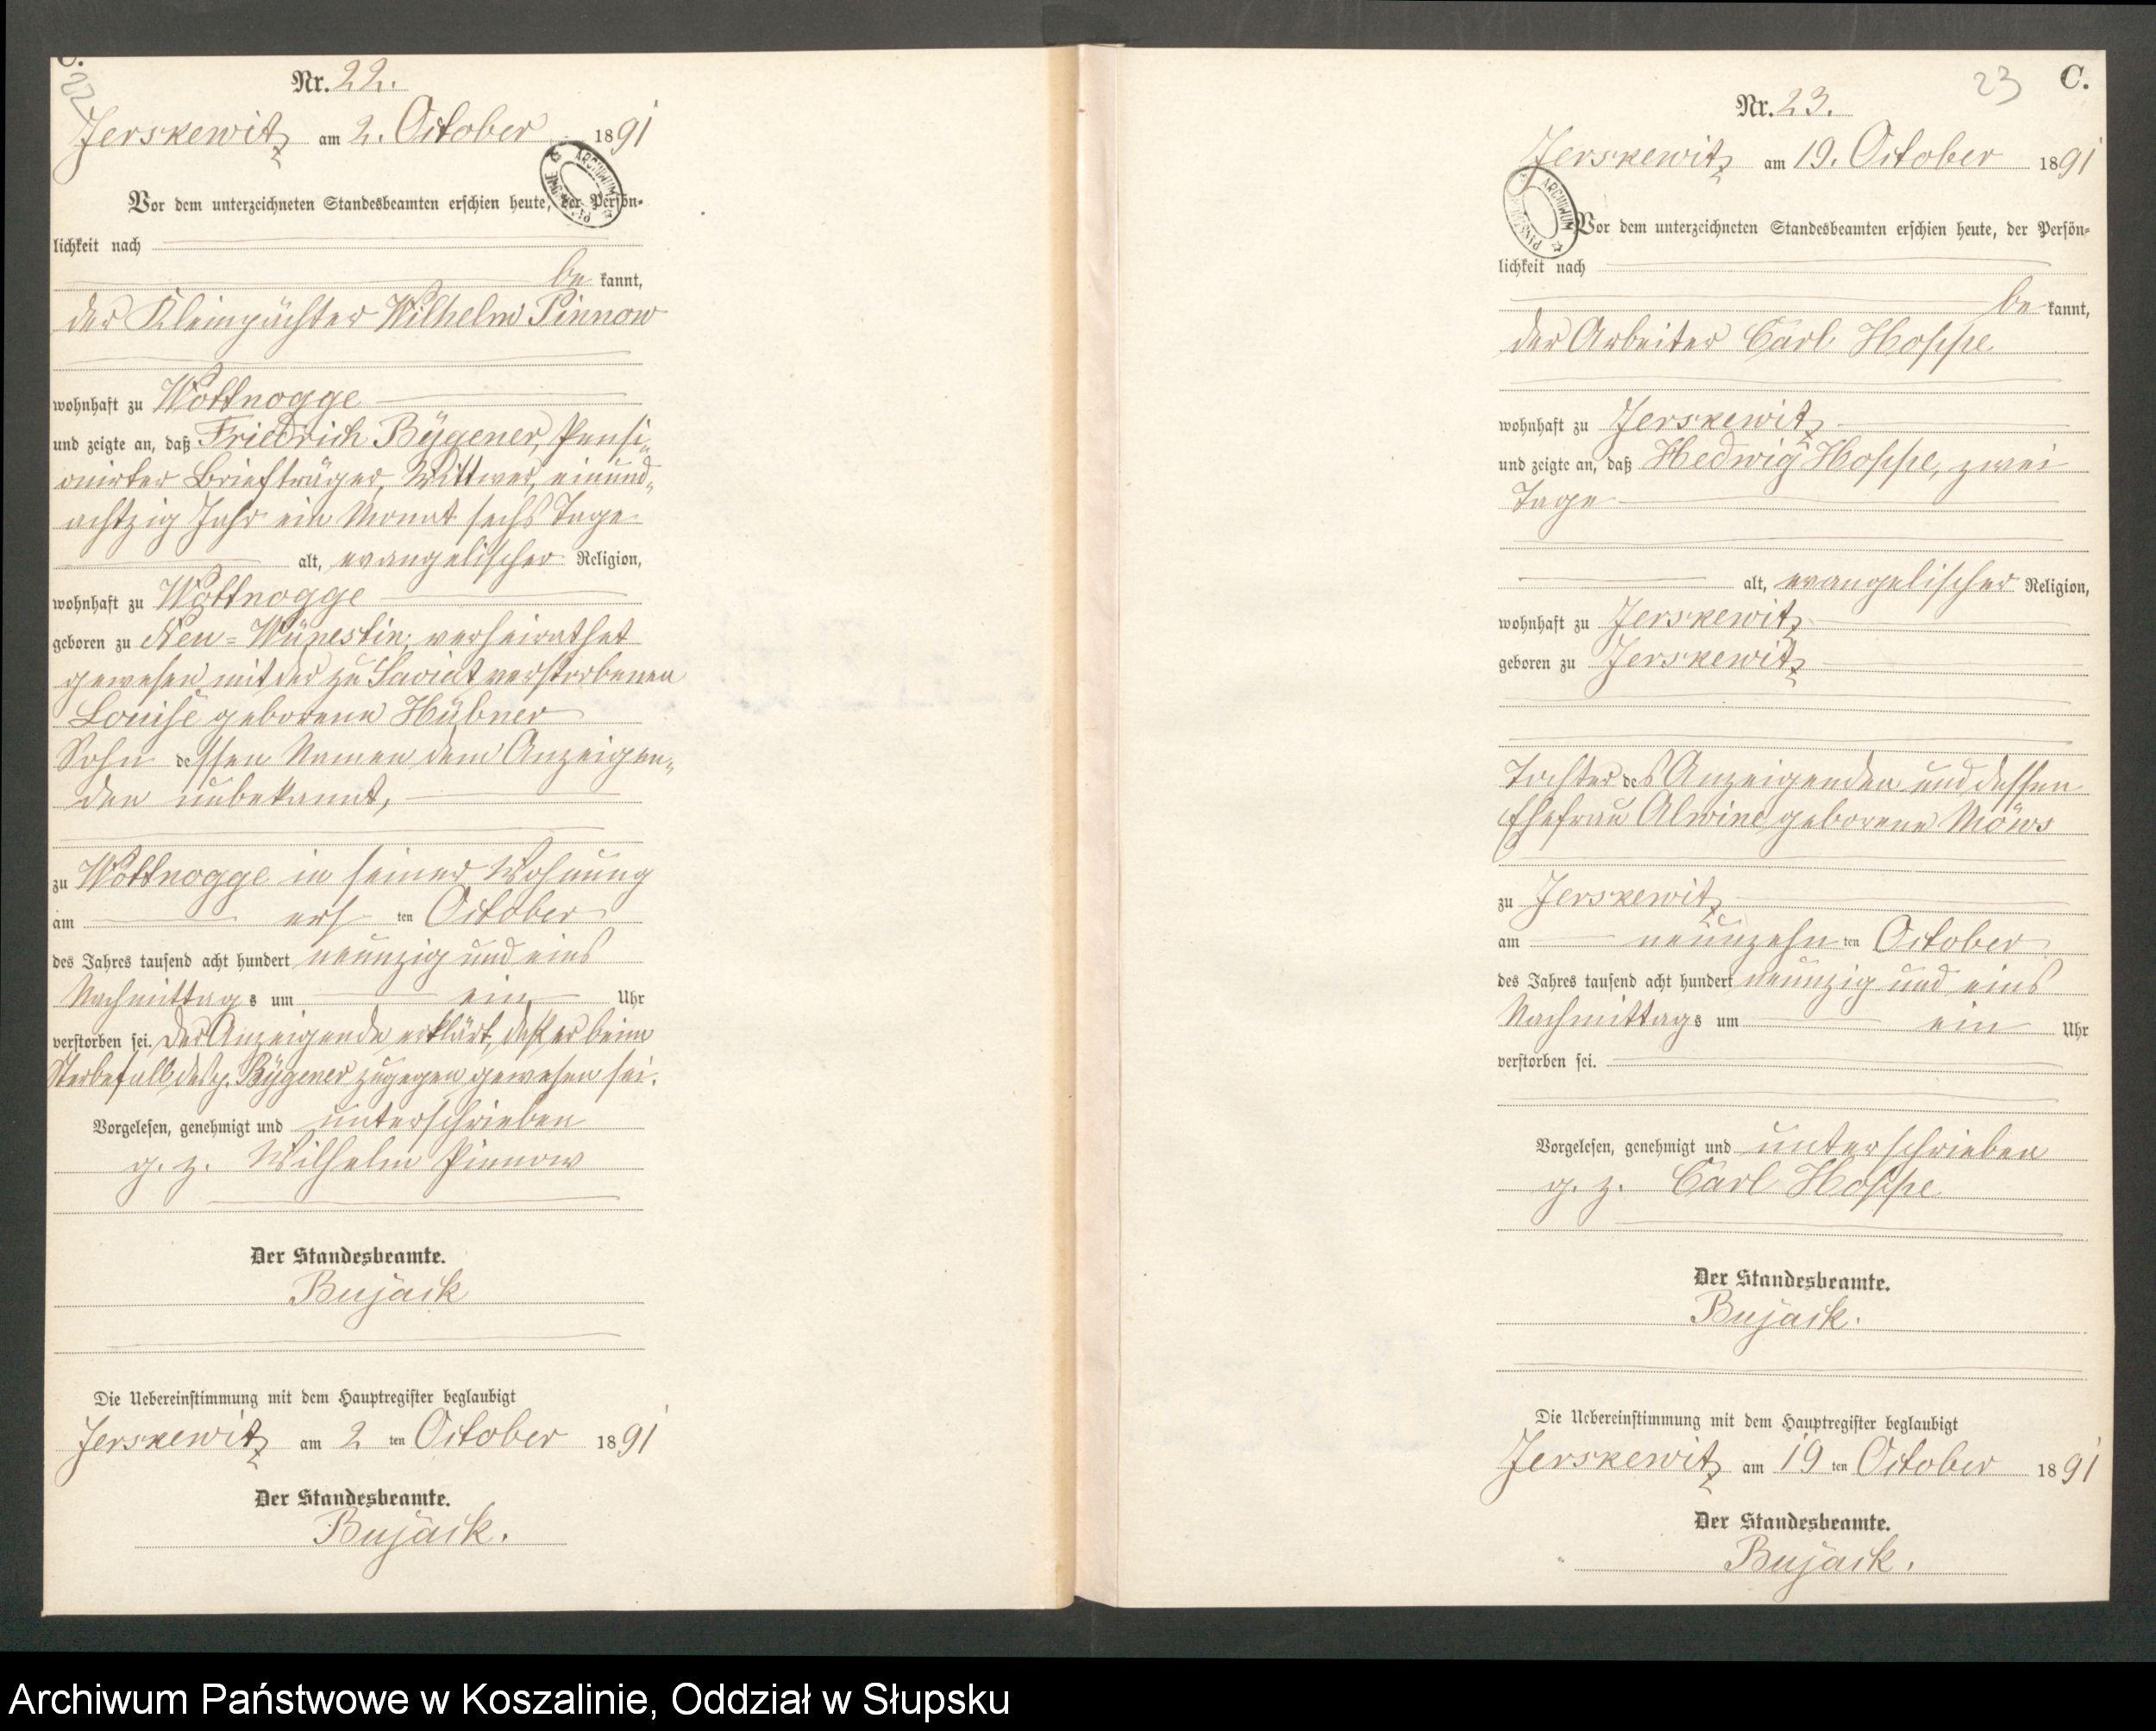 C.
22
Nr. 22.
Jerskewitz am 2. October 1891
Vor dem unterzeichneten Standesbeamten erschien heute, der Persön-
lichkeit nach
be kannt,
der Kleinpächter Wilhelm Pinnow
wohnhaft zu Wottnogge
und zeigte an, daß Friedrich Bÿgener, Pensi-
onirter Briefträger, Wittwer, einund-
achtzig Jahr ein Monat sechs Tage
alt, evangelischer Religion,
wohnhaft zu Wottnogge
geboren zu Neu- verheirathet
gewesen mit der zu Saviat verstorbenen
Louise geborene Hübner
Sohn dessen Namen dem Anzeigen-
den unbekannt,
zu Wottnogge in seiner Wohnung
am ers ten October
des Jahres tausend acht hundert neunzig und eins
Nachmittags um ein Uhr
verstorben sei. Der Anzeigende erklärt, daß er beim
Sterbefall des p. Bÿgener zugegen gewesen sei.
Vorgelesen, genehmigt und unterschrieben
g. z. Wilhelm Pinnow
Der Standesbeamte.
Bujack
Die Uebereinstimmung mit dem Hauptregister beglaubigt
Jerskewitz am 2 ten October 1891
Der Standesbeamte.
Bujack.
23 C.
Nr. 23.
Jerskewitz am 19. October 1891
ARCHIWUM
Vor dem unterzeichneten Standesbeamten erschien heute, der Persön-
lichkeit nach
be kannt,
der Arbeiter Carl Hoppe
wohnhaft zu Jerskewitz
und zeigte an, daß Hedwig Hoppe, zwei
Tage
alt, evangelischer Religion,
wohnhaft zu Jerskewitz
geboren zu Jerskewitz
Tochter des Anzeigenden und dessen
Ehefrau Alwine geborene Möws
zu Jerskewitz
am neunzehn ten October
des Jahres tausend acht hundert neunzig und eins
Nachmittags um ein Uhr
verstorben sei.
Vorgelesen, genehmigt und unterschrieben
g. z. Carl Hoppe
Der Standesbeamte.
Bujack.
Die Uebereinstimmung mit dem Hauptregister beglaubigt
Jerskewitz am 19 ten October 1891
Der Standesbeamte.
Bujack.
Archiwum Państwowe w Koszalinie, Oddział w Słupsku